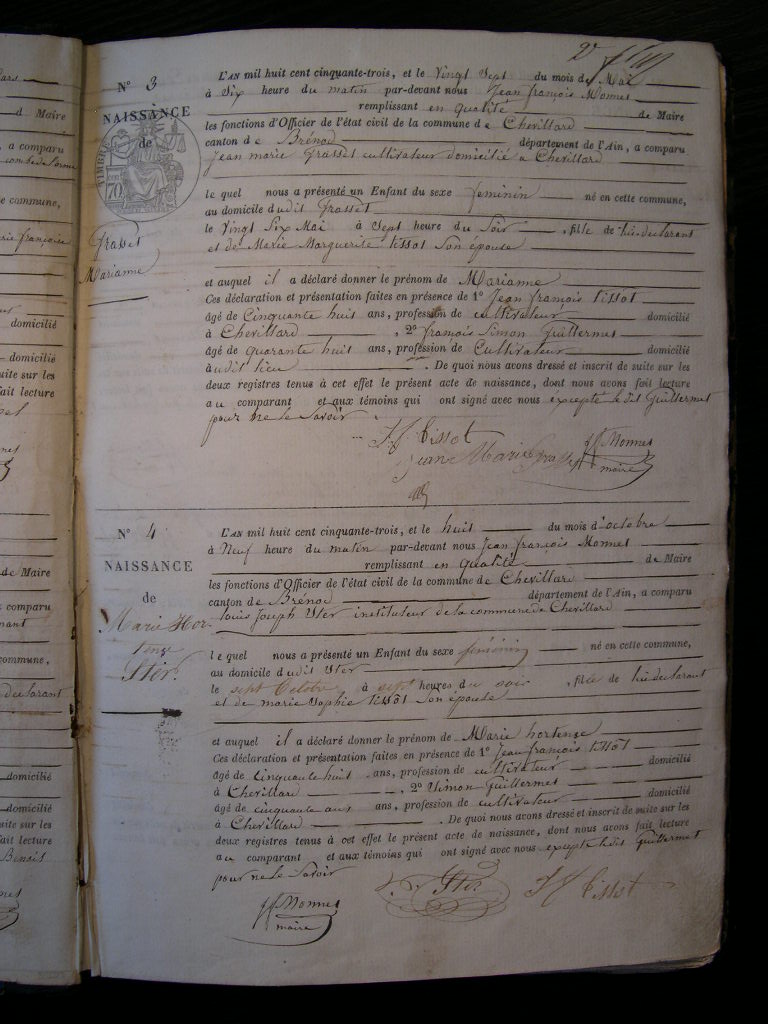 N° 3
NAISSANCE
de
TIMBRE
70
Grasset
Marianne
L'AN mil huit cent cinquante-trois, et le Vingt Sept du mois de Mai
à Six heure du matin par-devant nous Jean françois Monnet
remplissant en qualité de Maire
les fonctions d'Officier de l'état civil de la commune de Chevillard
canton de Brénod département de l'Ain, a comparu
Jean marie Grasset cultivateur domicilié a Chevillard
le quel nous a présenté un Enfant du sexe feminin né en cette commune,
au domicile dudit Grasset
le Vingt Six Mai à Sept heure du Soir, fille de lui declarant
et de Marie Marguerite tissot Son épouse
et auquel il a déclaré donner le prénom de Marianne
Ces déclaration et présentation faites en présence de 1° Jean françois tissot
âgé de Cinquante huit ans, profession de cultivateur domicilié
à Chevillard, 2° françois Simon Guillermet
âgé de quarante huit ans, profession de Cultivateur domicilié
audit lieu. De quoi nous avons dressé et inscrit de suite sur les
deux registres tenus à cet effet le présent acte de naissance, dont nous avons fait lecture
au comparant et aux témoins qui ont signé avec nous excepté ledit Guillermet
pour ne le Savoir.
J f tissot
Jean Marie Grasset
Jf Monnet
maire
N° 4
NAISSANCE
de
Marie Hor-
tense
Iter.
L'AN mil huit cent cinquante-trois, et le huit du mois d'octobre
à Neuf heure du matin par-devant nous Jean françois Monnet
remplissant en qualité de Maire
les fonctions d'Officier de l'état civil de la commune de Chevillard
canton de Brénod département de l'Ain, a comparu
louis Joseph Iter instituteur de la commune de Chevillard
le quel nous a présenté un Enfant du sexe féminin né en cette commune,
au domicile dudit Iter
le sept Octobre à sept heures du soir, fille de lui declarant
et de marie Sophie tissot Son épouse
et auquel il a déclaré donner le prénom de Marie hortense
Ces déclaration et présentation faites en présence de 1° Jean françois tissot
âgé de Cinquante huit ans, profession de cultivateur domicilié
à Chevillard, 2° Simon Guillermet
âgé de cinquante ans, profession de cultivateur domicilié
à Chevillard. De quoi nous avons dressé et inscrit de suite sur les
deux registres tenus à cet effet le présent acte de naissance, dont nous avons fait lecture
au comparant et aux témoins qui ont signé avec nous excepté ledit Guillermet
pour ne le Savoir
Jf Monnet
maire
Iter
J f tissot